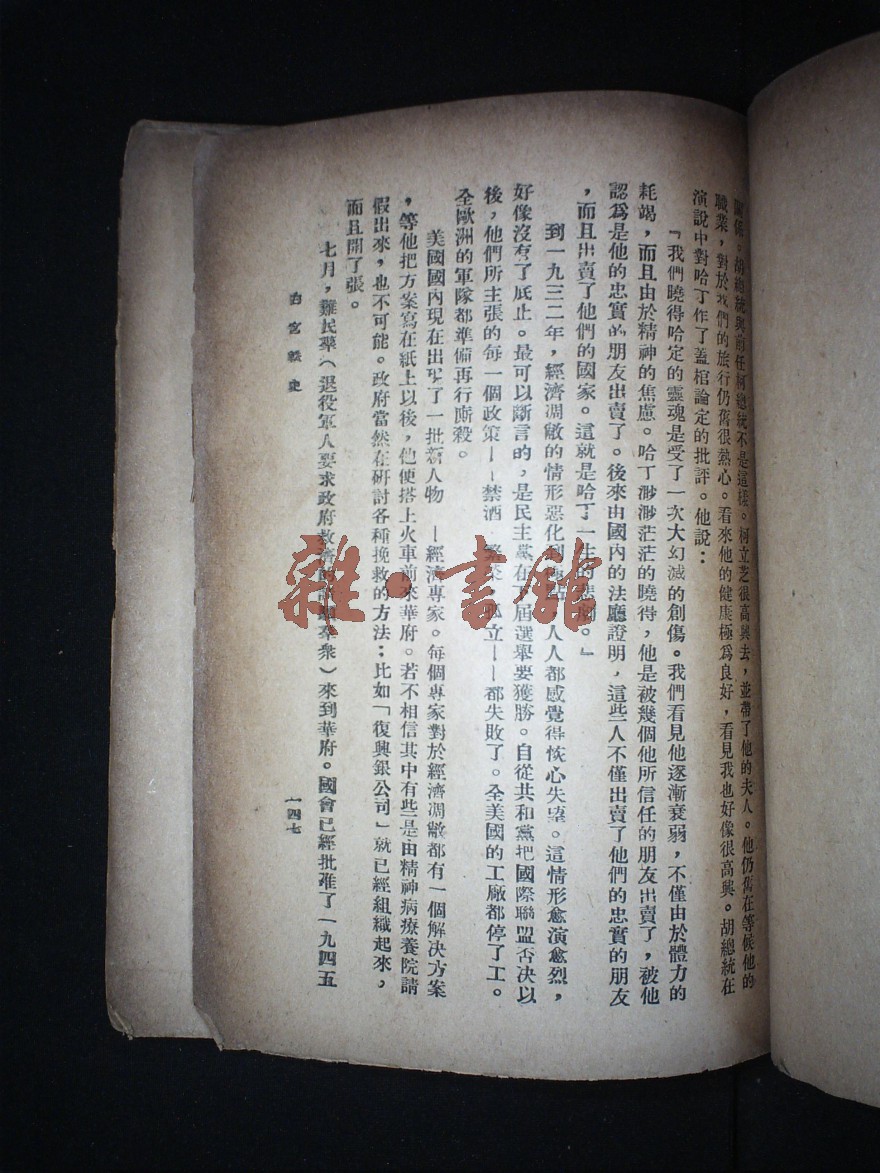 關係。胡總統與前任柯總統不是這樣。柯立芝很高興去，並帶了他的夫人。他仍舊在等候他的
職業，對於我們的旅行仍舊很熱心。看來他的健康極爲良好，看見我也好像很高興。胡總統在
演說中對哈丁作了蓋棺論定的批評。他說：
『我們曉得哈定的靈魂是受了一次大幻滅的創傷。我們看見他逐漸衰弱，不僅由於體力的
耗竭，而且由於精神的焦慮。哈丁渺渺茫茫的曉得，他是被幾個他所信任的朋友出賣了，被他
認爲是他的忠實的朋友出賣了。後來由國內的法廳證明，這些人不僅出賣了他們的忠實的朋友
，而且出賣了他們的國家。這就是哈丁一生的悲劇。』
到一九三二年，經濟凋敝的情形惡化到人人都感覺得恢心失望。這情形愈演愈烈，
好像沒有了底止。最可以斷言的，是民主黨在下屆選舉要獲勝。自從共和黨把國際聯盟否決以
後，他們所主張的每一個政策——禁酒，繁榮，孤立——都失敗了。全美國的工廠都停了工。
全歐洲的軍隊都準備再行廝殺。
美國國內現在出現了一批新人物—經濟專家。每個專家對於經濟凋敝都有一個解決方案
，等他把方案寫在紙上以後，他便搭上火車前來華府。若不相信其中有些是由精神病療養院請
假出來，也不可能。政府當然在研討各種挽救的方法；比如「復興銀公司」就已經組織起來，
而且開了張。
七月，難民羣（退役軍人要求政府救濟的羣衆）來到華府。國會已經批准了一九四五
白宮軼史
一四七
雜·書館